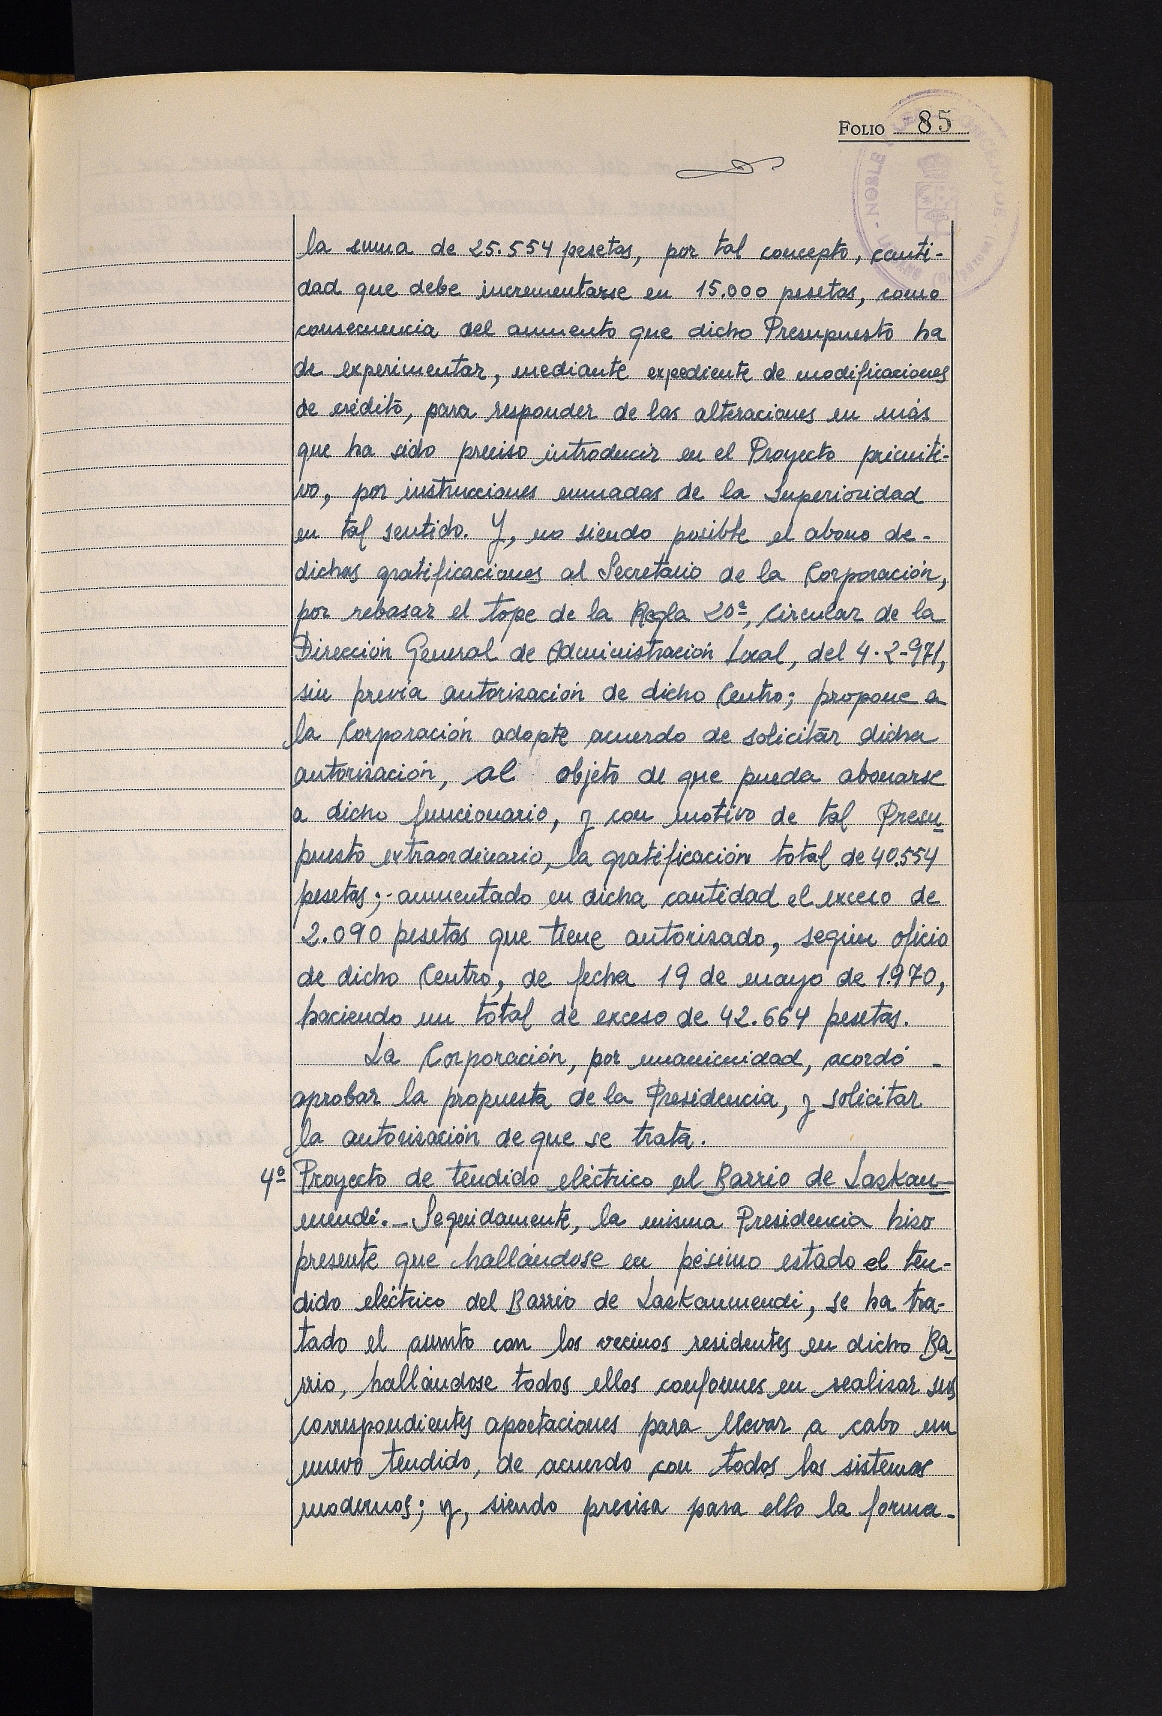 FOLIO 85
la suma de 25.554 pesetas, por tal concepto, canti-
dad que debe incrementarse en 15.000 pesetas, como
consecuencia del aumento que dicho Presupuesto ha
de experimentar, mediante expediente de modificaciones
de crédito, para responder de las alteraciones en más
que ha sido preciso introducir en el Proyecto primiti-
vo, por instrucciones emanadas de la Superioridad
en tal sentido. Y, no siendo posible el abono de-
dichas gratificaciones al Secretario de la Corporación,
por rebasar el tope de la Regla 20ª, Circular de la
Dirección General de Administración Local, del 4-2-971,
sin previa autorización de dicho Centro; propone a
la Corporación adopte acuerdo de solicitar dicha
autorización, al objeto de que pueda abonarse
a dicho funcionario, y con motivo de tal Presu-
puesto extraordinario, la gratificación total de 40.554
pesetas; aumentado en dicha cantidad el exceso de
2.090 pesetas que tiene autorizado, según oficio
de dicho Centro, de fecha 19 de mayo de 1.970,
haciendo un total de exceso de 42.664 pesetas.
La Corporación, por unanimidad, acordó -
aprobar la propuesta de la Presidencia, y solicitar
la autorización de que se trata.
4º Proyecto de tendido eléctrico al Barrio de Lazkau-
mendi.- Seguidamente, la misma Presidencia hizo
presente que hallándose en pésimo estado el ten-
dido eléctrico del Barrio de Lazkaumendi, se ha tra-
tado el asunto con los vecinos residentes en dicho Ba-
rrio, hallándose todos ellos conformes en realizar sus
correspondientes aportaciones para llevar a cabo un
nuevo tendido, de acuerdo con todos los sistemas
modernos; y, siendo precisa para ello la forma-